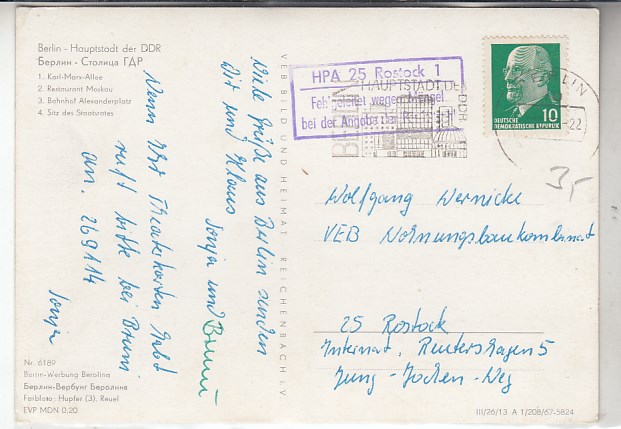 Berlin - Hauptstadt der DDR
Берлин - Столица ГДР
1. Karl-Marx-Allee
2. Restaurant Moskau
3. Bahnhof Alexanderplatz
4. Sitz des Staatsrates
Viele Grüße aus Berlin senden
Dir und Klaus
Sonja und
Wenn Ihr Theaterkarten habt
ruft bitte bei
an. 269114
Sonja
Nr. 6189
Berlin-Werbung Berolina
Берлин-Вербунг Беролина
Farbfoto: Hupfer (3), Reuel
EVP MDN 0,20
VEB BILD UND HEIMAT REICHENBACH i. V.
HPA 25 Rostock 1
Fehlgeleitet wegen Mängel
bei der Angabe der
HAUPTSTADT DER
DDR
BERLIN
-22
10
DEUTSCHE
DEMOKRATISCHE REPUBLIK
3,-
Wolfgang Wernicke
VEB Wohnungsbaukombinat
25 Rostock
Internat, Reutershagen 5
Jung-Jochen-Weg
III/26/13 A 1/208/67-5824